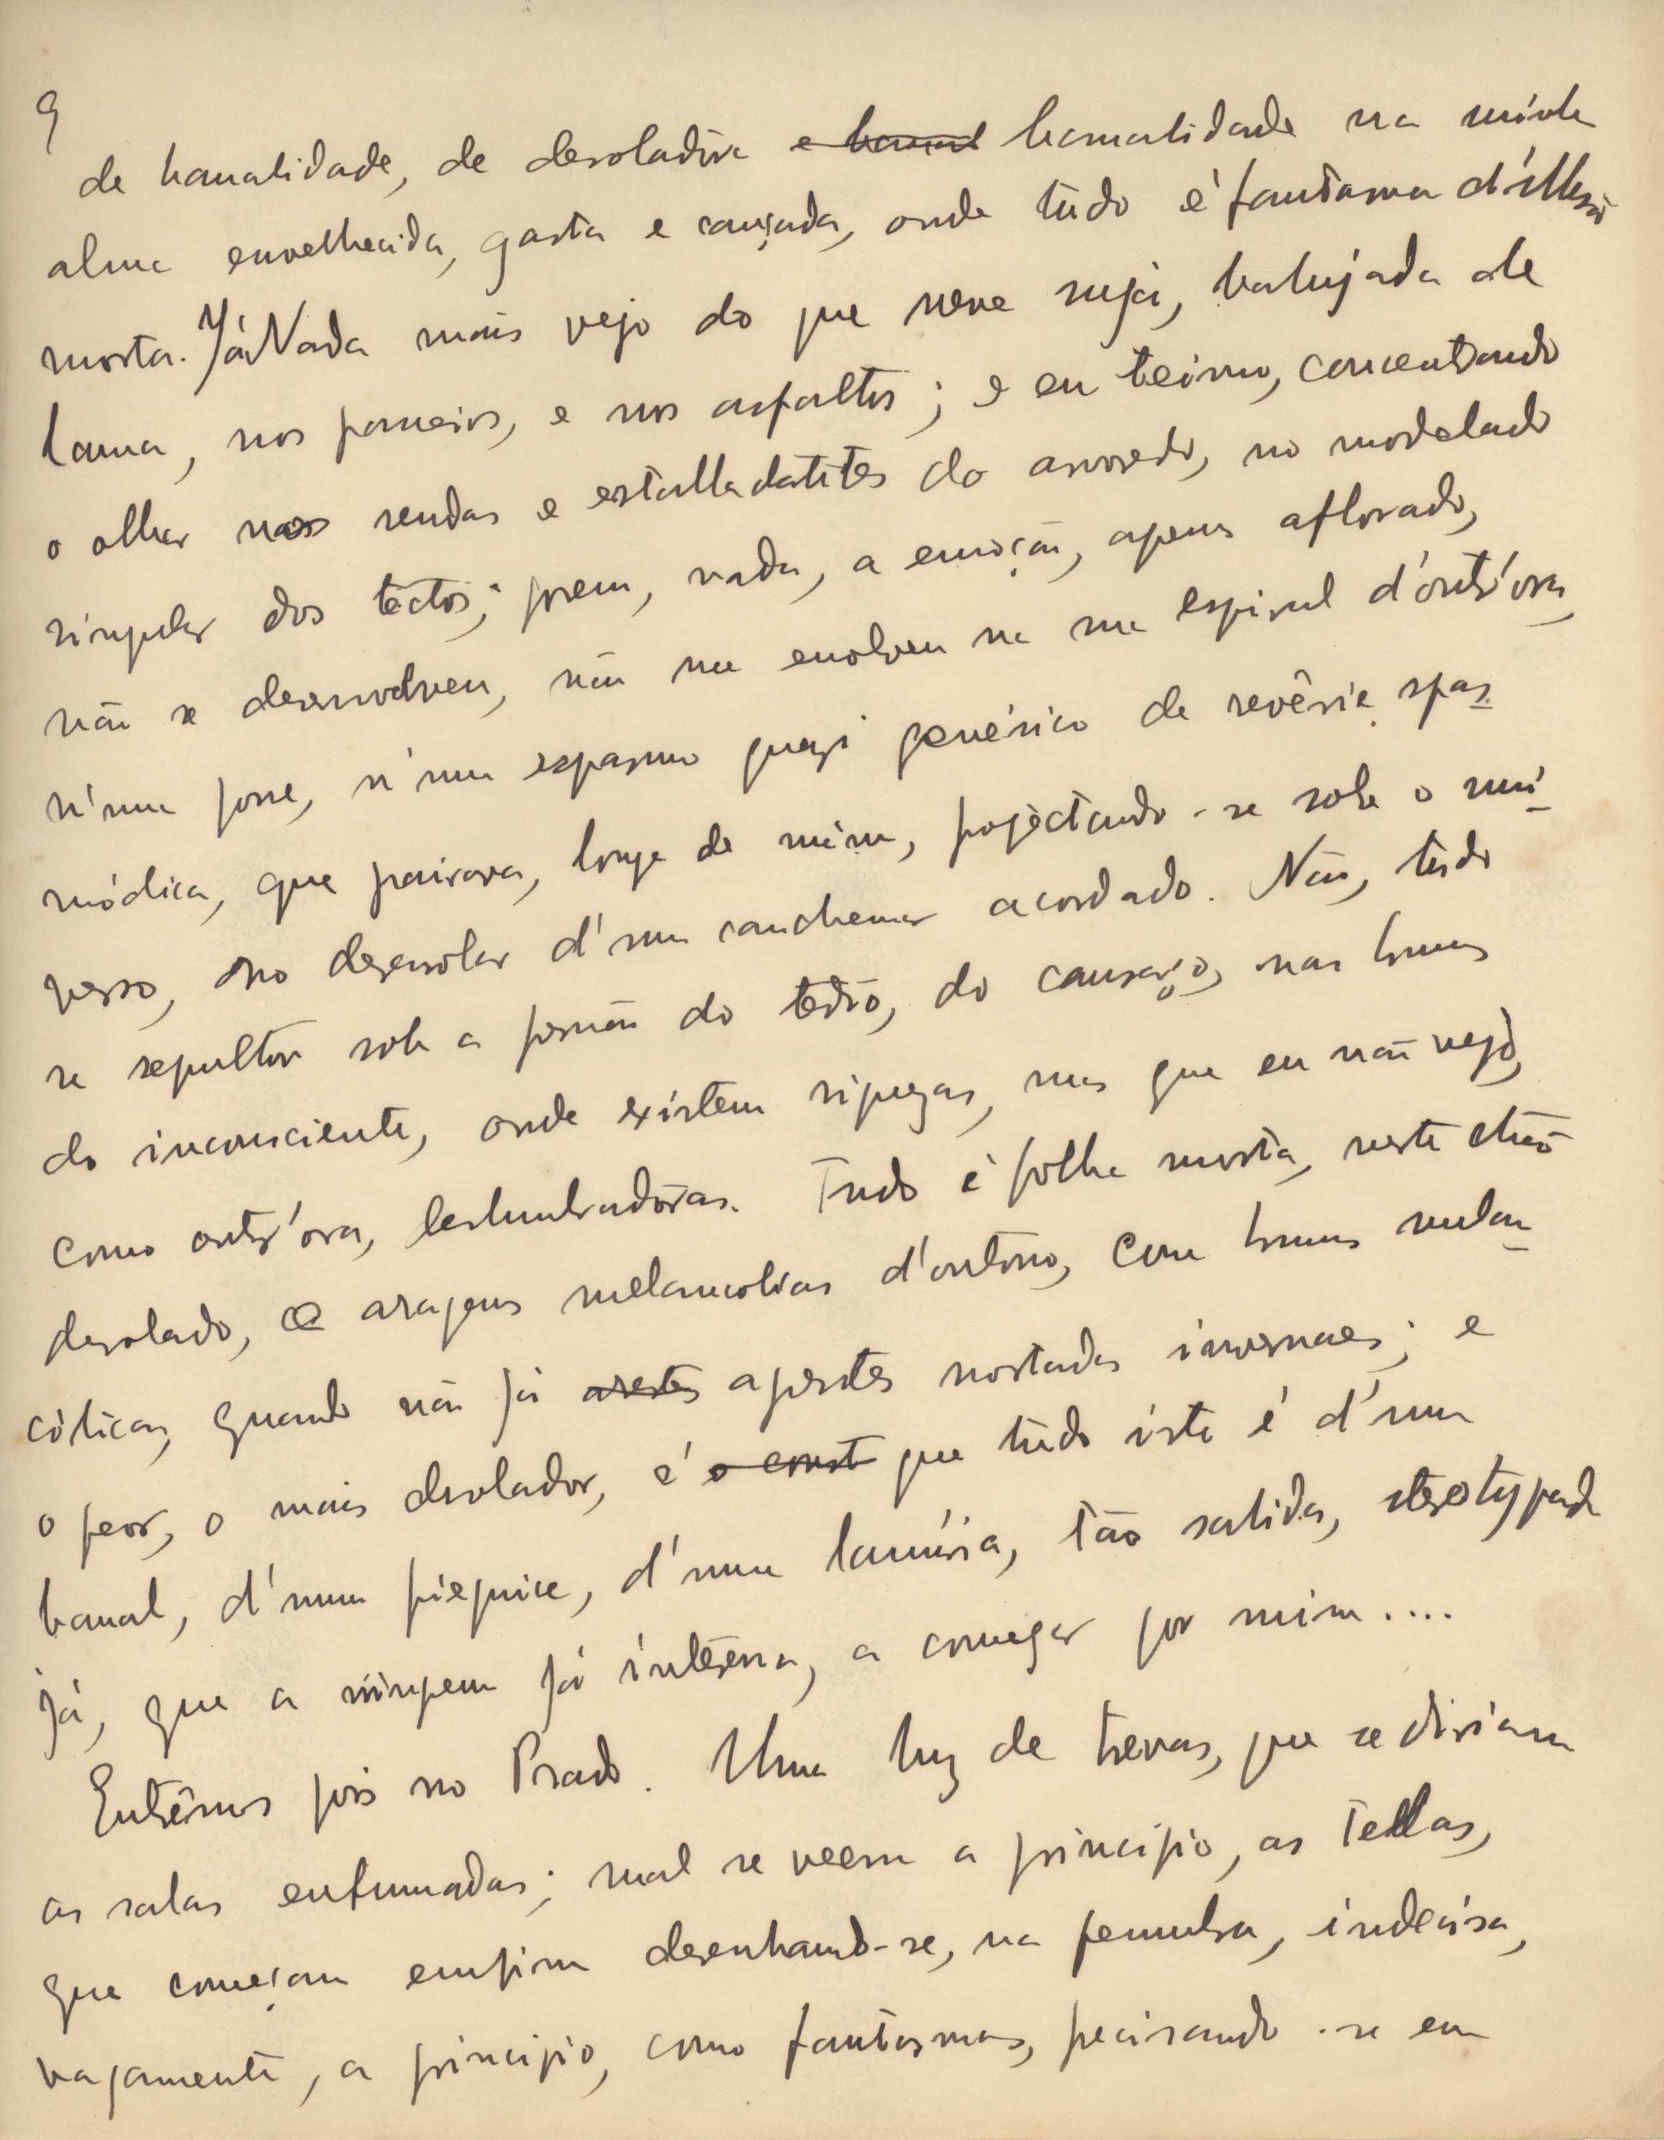 9
de banalidade, de desoladora e banal banalidade na minha
alma envelhecida, gasta e cançada, onde tudo é fantasma d'illusão
morta. Já Nada mais vejo do que neve suja, babujada de
lama, nos passeios, e nos asfaltos; e eu teimo, concentrando
o olhar nas rendas e estalladatites do arvoredo, no modelado
singular dos tectos; porem, nada, a emoção, apenas aflorado,
não se desenvolveu, não me envolveu na sua espiral d'outr'ora,
n'uma posse, n'um espasmo quazi genésico de revêrie spas-
módica, que pairava, longe de mim, projectando-se sobe o uni-
verso, no desenrolar d'um cauchemar acordado. Não, tudo
se sepultou sob a pressão do tedio, do cansaço, nas brumas
do inconsciente, onde existem riquezas, mas que eu não vejo,
como outr'ora, deslumbradoras. Tudo é folha morta, neste chão
desolado, e aragens melancolicas d'outono, com brumas melan-
cólicas, quando não já arestes agrestes nortadas invernaes; e
o peor, o mais desolador, é o const que tudo isto é d'um
banal, d'uma pieguice, d'uma lamúria, tão sabida, stereotypada
já, que a ninguem já interessa, a começar por mim....
Entrêmos pois no Prado. Uma luz de trevas, que se diriam
as salas enfumadas; mal se veem a principio, as tellas,
que começam emfim desenhando-se, na penumbra, indecisa,
vagamente, a principio, como fantasmas, precisando-se em